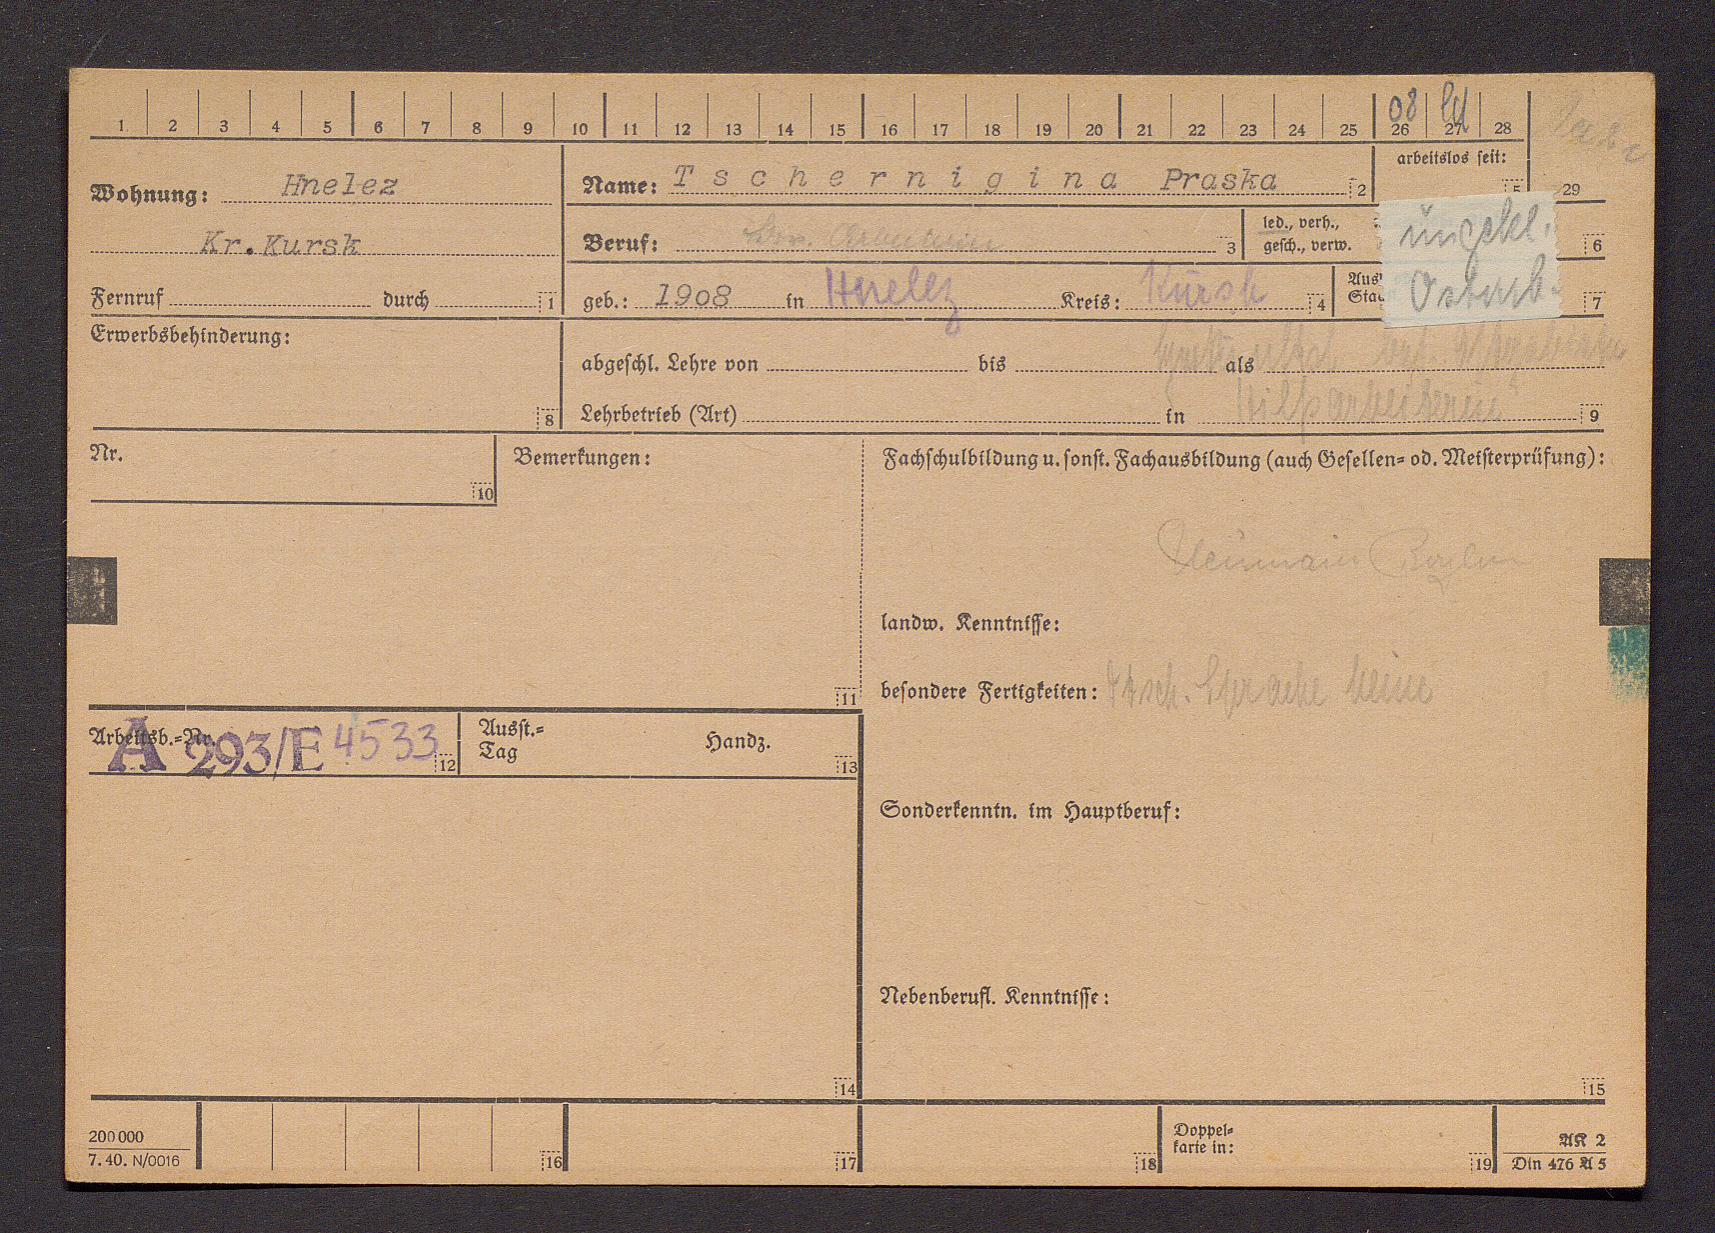 1 2 3 4 5 6 7 8 9 10 11 12 13 14 15 16 17 18 19 20 21 22 23 24 25 26 27 28
08
Wohnung: Hnelez
Kr. Kursk
Fernruf durch 1
Name: Tschernigina Praska 2
arbeitslos seit:
5 29
Beruf: 3
led., verh.,
gesch., verw.
ungekl.
Ostarb.
6
geb.: 1908 in Hnelez Kreis: Kursk 4
7
Erwerbsbehinderung:
8
abgeschl. Lehre von bis als
Lehrbetrieb (Art) in Hilfsarbeiterin 9
Nr.
10
Bemerkungen:
11
Fachschulbildung u. sonst. Fachausbildung (auch Gesellen- od. Meisterprüfung):
landw. Kenntnisse:
besondere Fertigkeiten: dtsch. Sprache keine
Arbeitsb.-Nr. A 293/E 4533 12
Ausst.-
Tag Handz. 13
Sonderkenntn. im Hauptberuf:
Nebenberufl. Kenntnisse:
14
15
200 000
7. 40. N/0016
16
17
18
Doppel-
karte in:
19
AK 2
Din 476 A 5